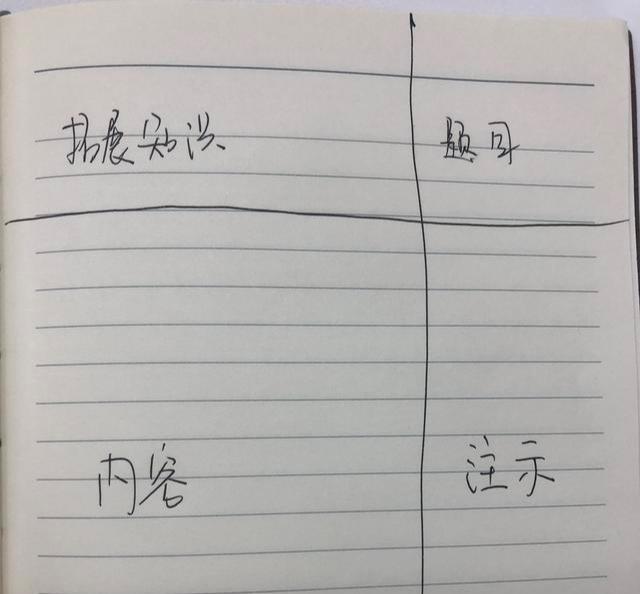 拓展知识
题目
内容
注示